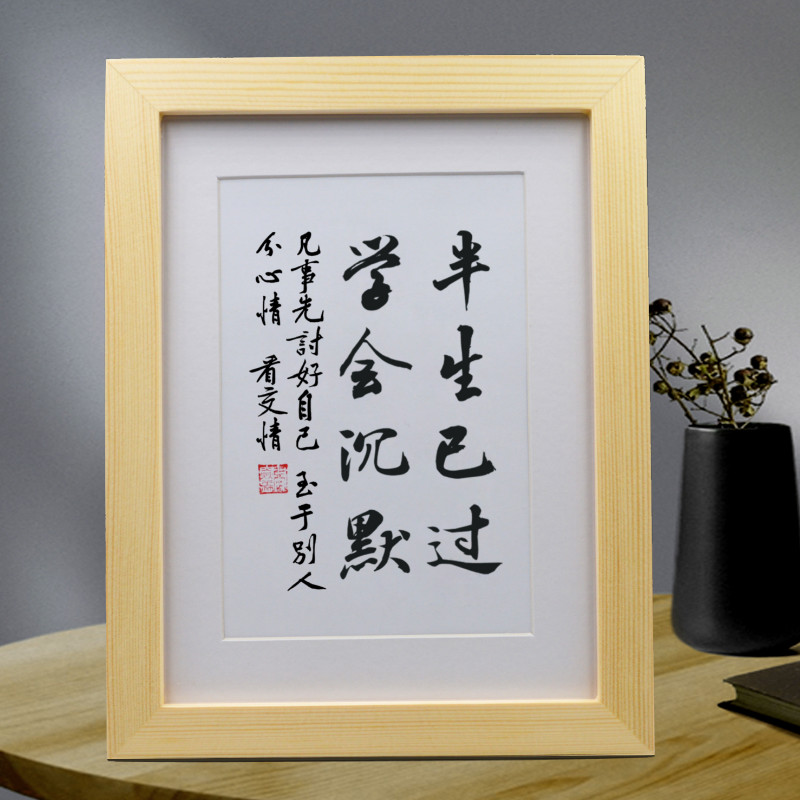 半生已过
学会沉默
凡事先討好自己 至于别人
分心情 看交情